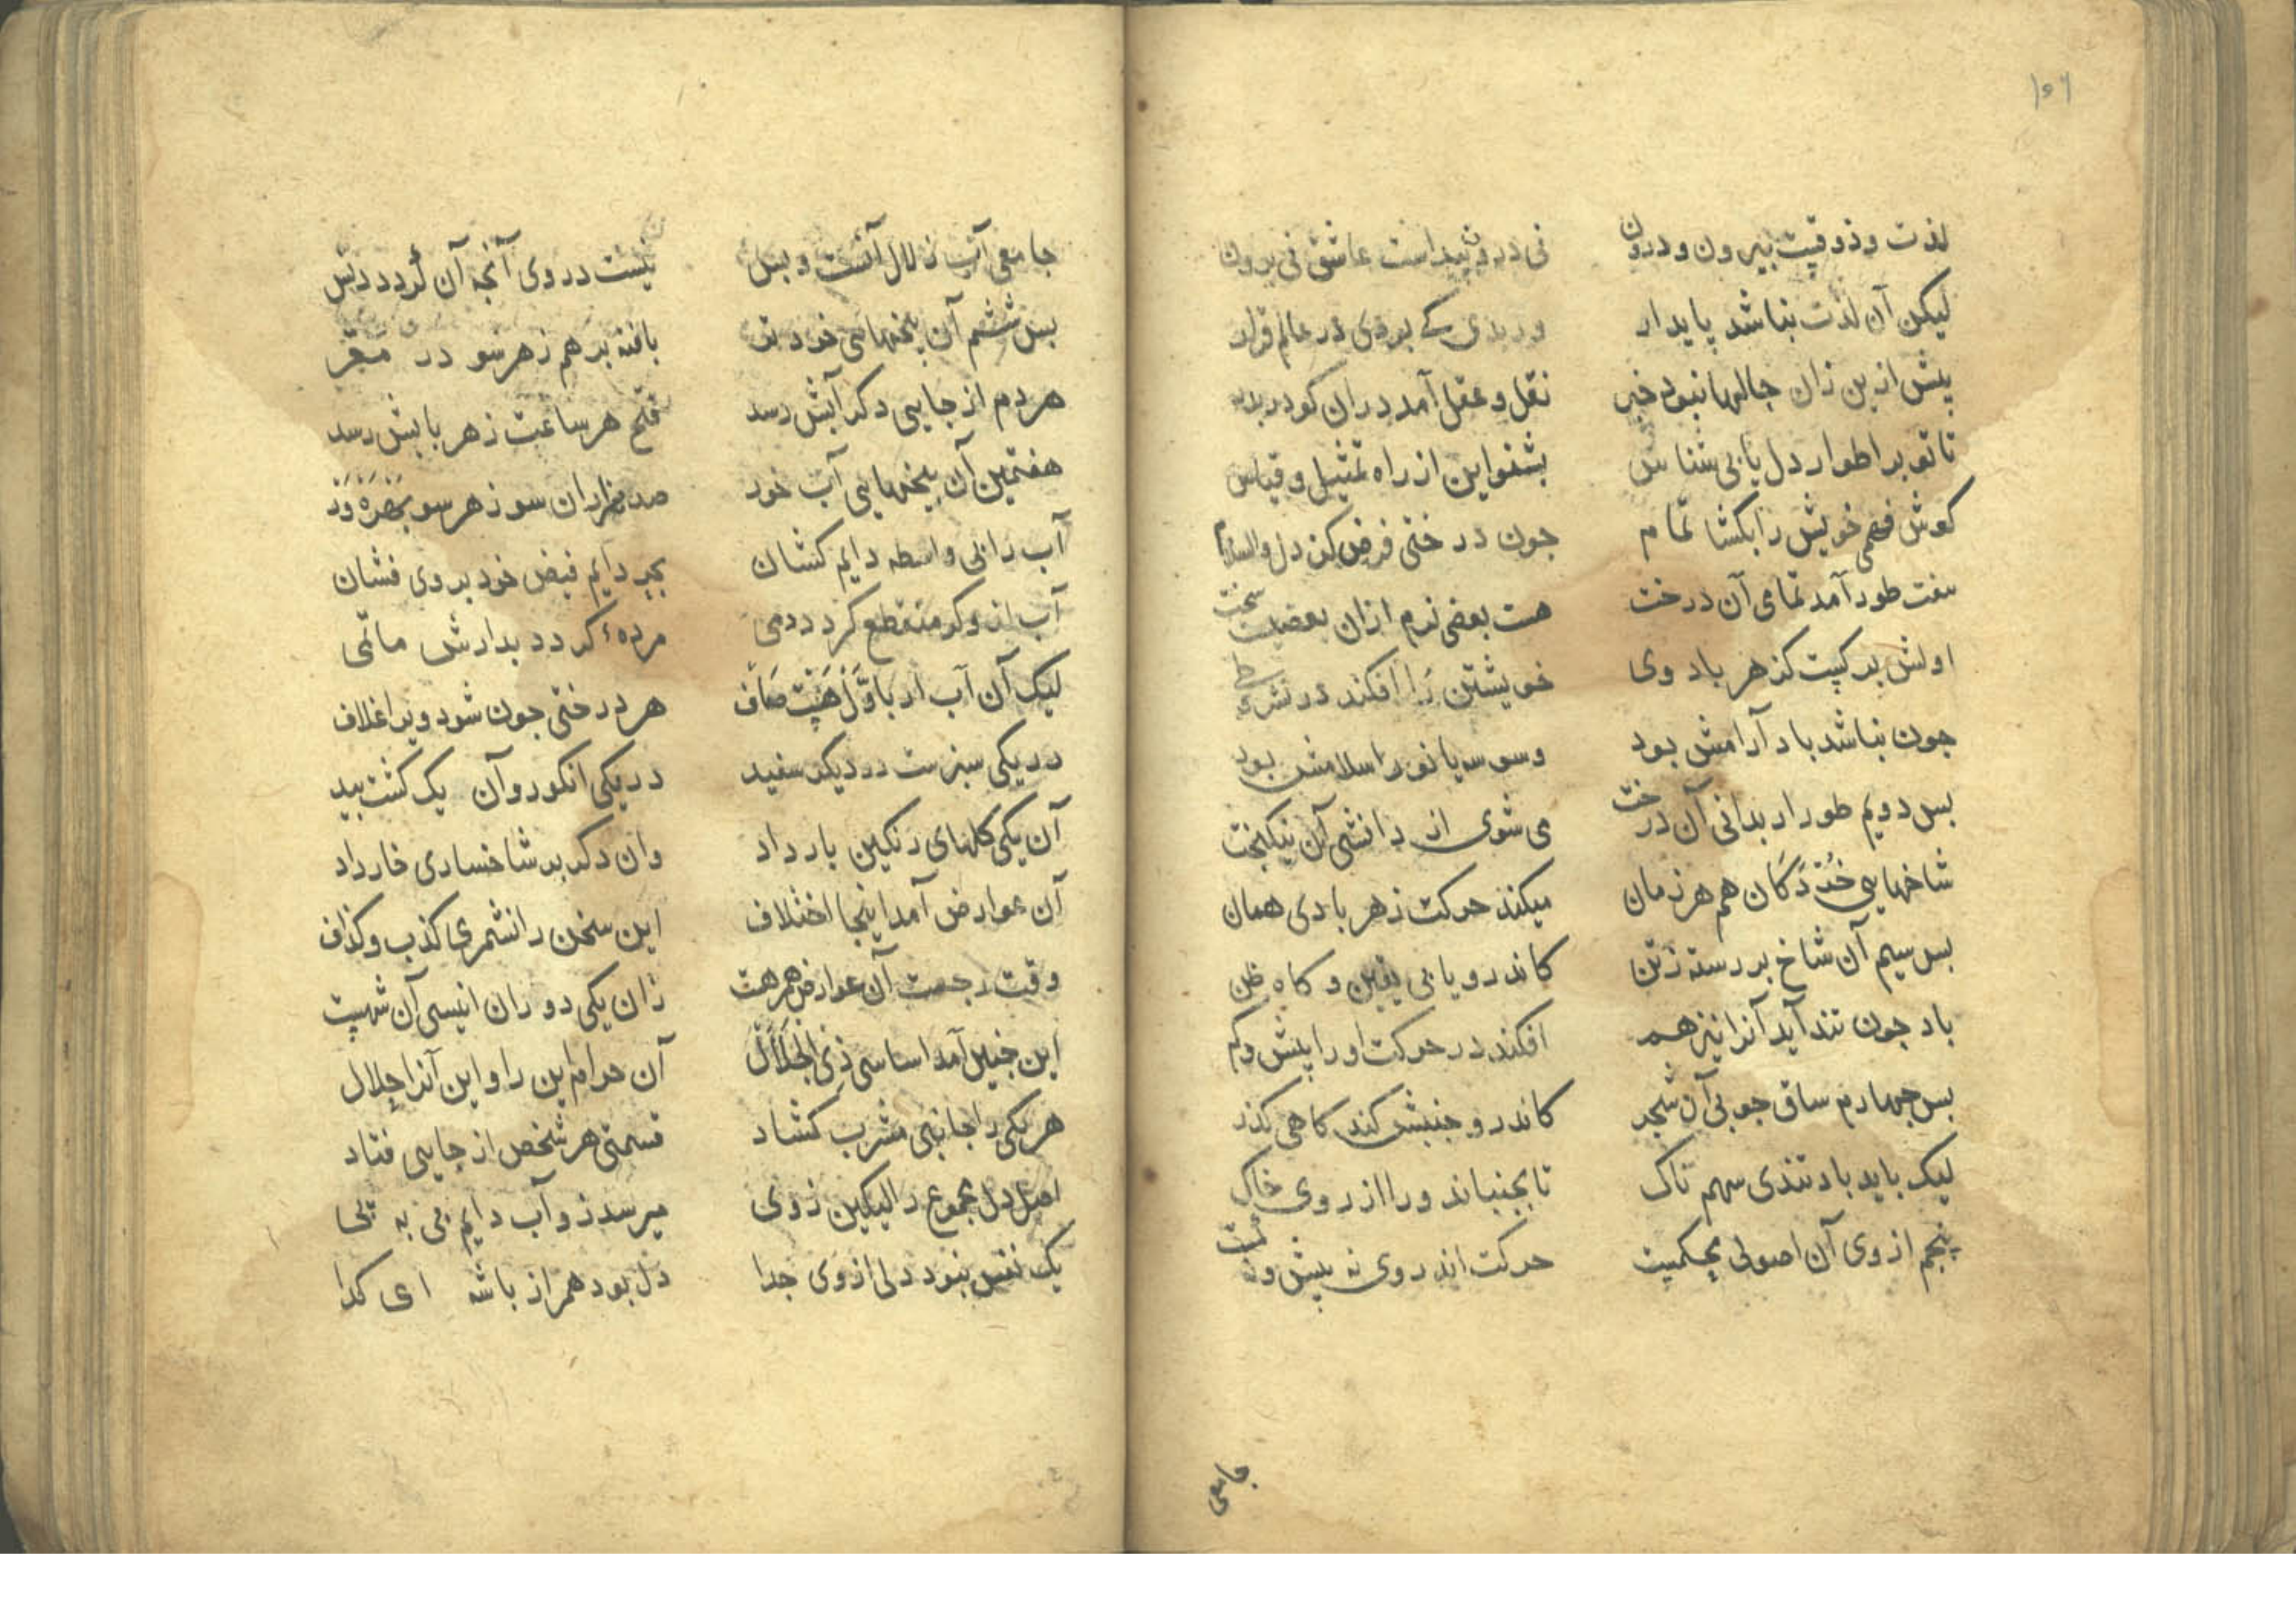 ۱۵۶
لذت و ذوقیت بیرون و درون نی درون پیداست عاشق نی برون
لیکن آن لذت نباشد پایدار ور بدی کے بودی در عالم قرار
پیش ازین زان حالها نبود خبر نقل و عقل آمد دران کو در بدر
تا تو بر اطوار دل یابی شناس بشنو این از راه تمثیل و قیاس
کوش فهمی خویش را بکشا تمام جون درختی فرض کن دل والسلام
هفت طور آمد تمامی آن درخت هست بعضی نرم ازان بعضیست سخت
اولش برکیست کز هر باد وی خویشتن را افکند در نشر طی
جون نباشد باد آرامش بود وسوسه یا نور اسلامش بود
بس دویم طور ار بدانی آن درخت می شوی از دانشی آن نیکبخت
شاخهایی خردکان هم هر زمان میکند حرکت ز هر بادی همان
بس سیم آن شاخ بررسته زتن کاندرو یابی یقین و کاه ظن
باد جون تند آید آنرا نیز هم افکند در حرکت او را پیش و کم
بس جهارم ساق جوبی آن شجر کاندرو جنبش کند کاهی کذر
لیک باید باد تندی سهم ناک تا بجنباند ورا از روی خاک
پنجم از وی آن اصولی محکمیت حرکت اندر وی نه بیش و نه کمست
جامعی
جامعی آب زلال آنست و بس نیست در وی آنجه آن کردد دنس
بس ششم آن بیخهایی خرد تر بافته بر هم ز هر سو در مقر
هر دم از جایی دکر آبش رسد فتح هر ساعت ز هر بابش رسد
هفتمین آن بیخهایی آب خورد صد هزاران سو ز هر سو
آب را بی واسطه دایم کشان بحر دایم فیض خود بر وی فشان
آب ازو کر منقطع کردد دمی مرده کردد بدارش ماتمی
لیک آن آب ار باول هست صاف هر درختی جون شود ویرا غلاف
در یکی سبزست در دیکر سفید در یکی انکور و آن یک کشت بید
آن یکی کلهای رنکین بار داد وان دکر بر شاخساری خار داد
آن عوارض آمد اینجا اختلاف این سخن را نشمری کذب و کذاف
وقت رجعت آن عوارض همرهت زان یکی دوران انیسی آن شهیت
این جنین آمد اساسی ذی الجلال آن حرام این را و این آنرا حلال
هر یکی را جانبی مشرب کشاد قسمتی هر شخص از جایی فتاد
اصل دل مجموع را لیکین ز وی میرسد زو آب دایم پی به پی
یک نفس نبود دلی از وی جدا دل بود همراز باشه ای کدا